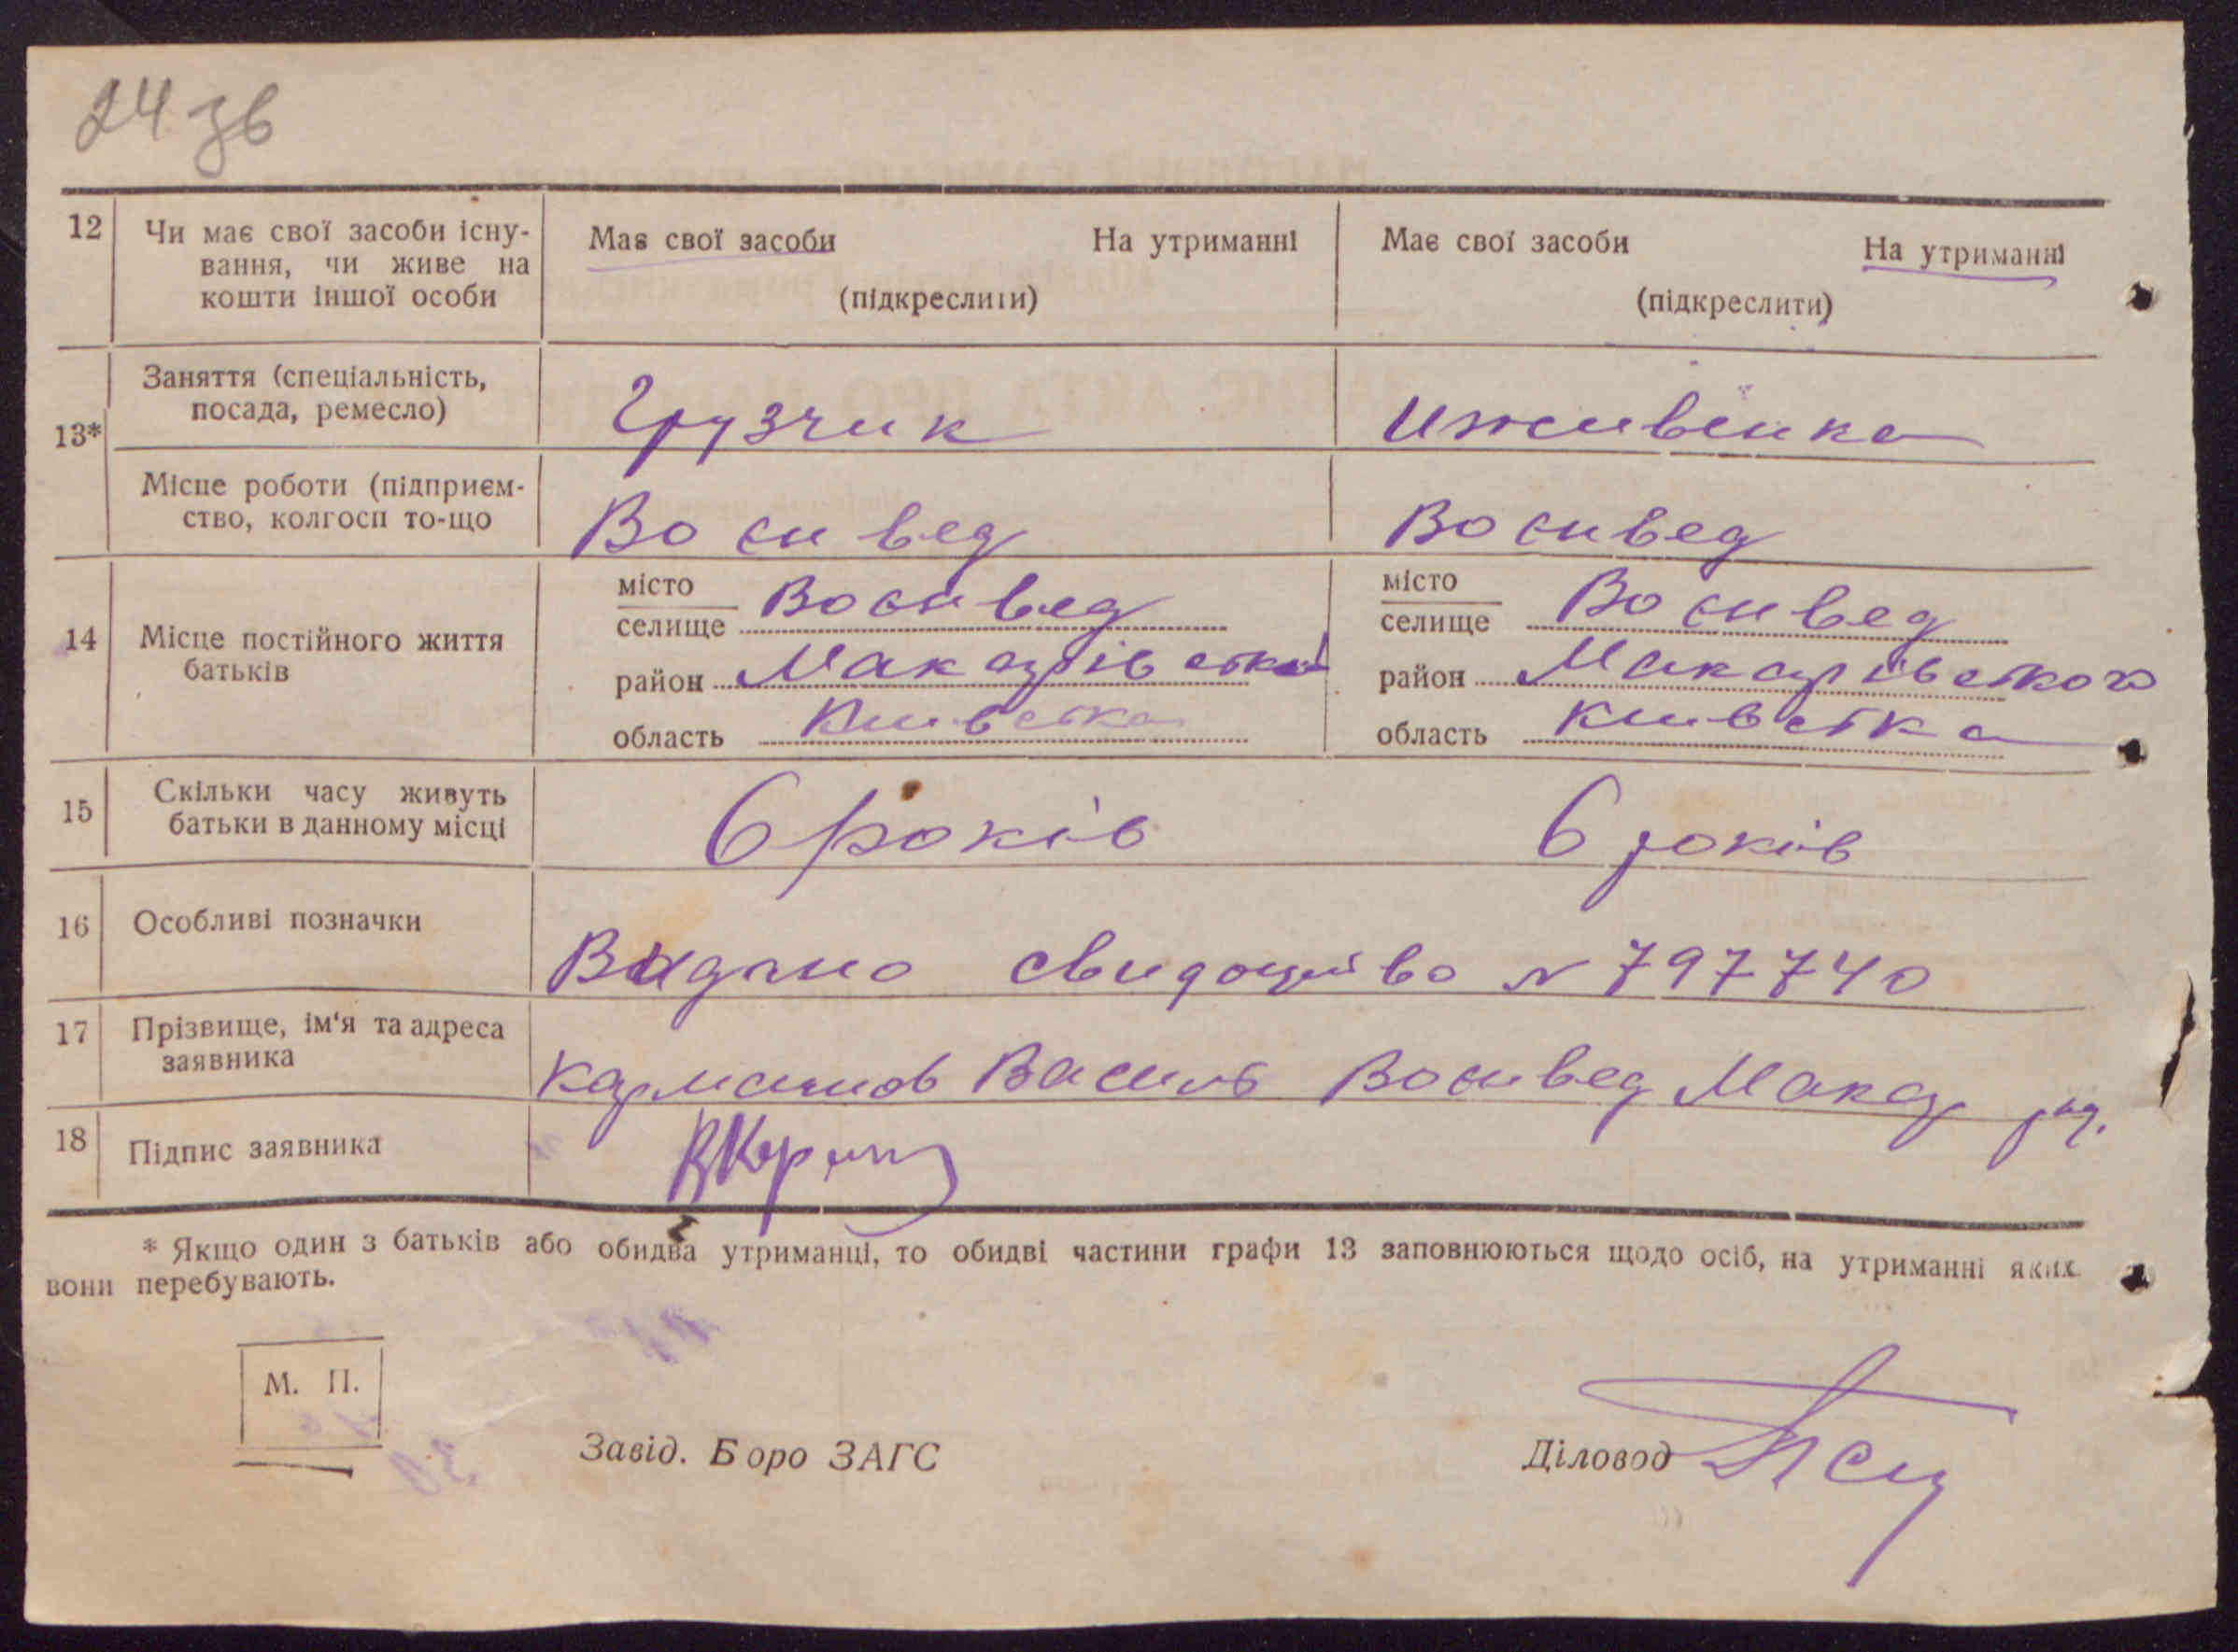 24 зв
12 Чи має свої засоби існу- Має свої засоби На утриманні Має свої засоби На утриманні
вання, чи живе на
кошти іншої особи (підкреслити) (підкреслити)
13* Заняття (спеціальність,
посада, ремесло) Грузчик Иживёнка
Місце роботи (підприєм-
ство, колгосп то-що Восивед Восивед
14 Місце постійного життя
батьків
місто Восивед місто Восивед
селище селище
район Макарівський район Макарівського
область Київська область Київська
15 Скільки часу живуть
батьки в данному місці 6 років 6 років
16 Особливі позначки
Видано свидоцтво N 797740
17 Прізвище, ім'я та адреса
заявника
Карманов Василь Восивед Макар рад.
18 Підпис заявника
* Якщо один з батьків або обидва утриманці, то обидві частини графи 13 заповнюються щодо осіб, на утриманні яких
вони перебувають.
М. П.
Завід. Бюро ЗАГС Діловод